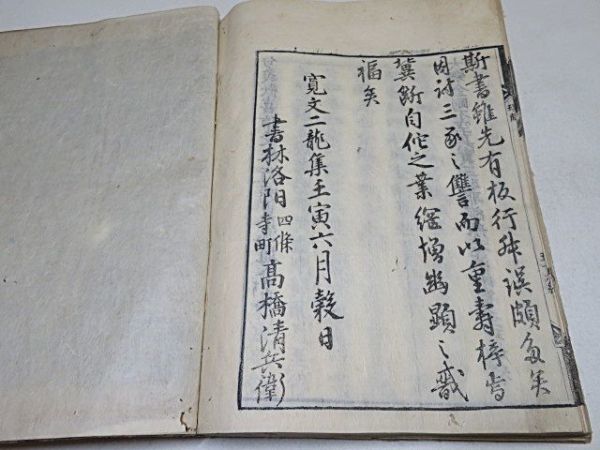 斯書雖先有板行舛誤頗多矣
因詩三豕之讐而以重壽梓焉
冀斷自佗之業纒増幽顯之戩
福矣
寛文二龍集壬寅六月穀日
書林洛陽四條寺町高橋清兵衛